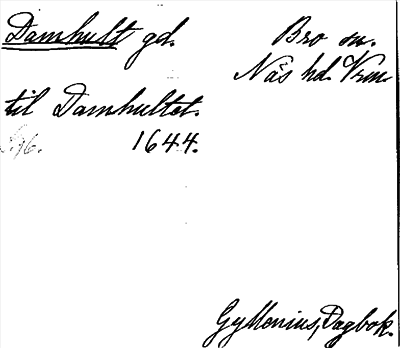 Damhult gd. Bro sn.
Näs hd. Vrml.
til Damhultet.
1644.
Gyllenius, Dagbok.